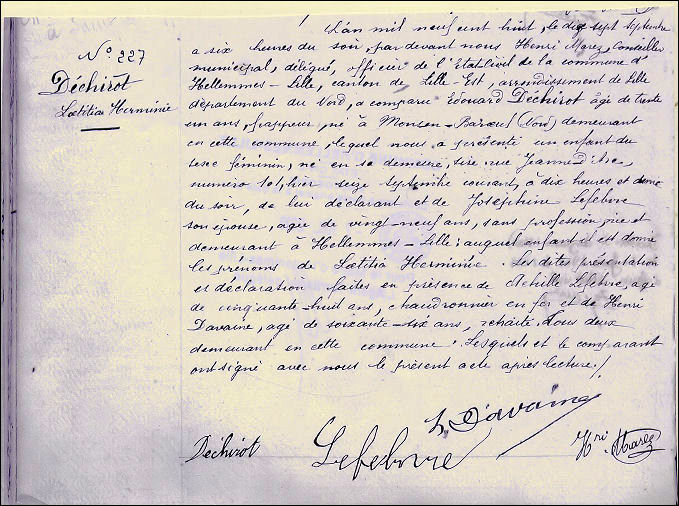 N° 227
Déchirot
Lœtitia Herminie
L'an mil neuf cent huit, le dix sept Septembre
a six heures du soir, par devant nous Henri Marez, Conseiller
municipal, délégué, officier de l'Etat Civil de la commune d'
Hellemmes-Lille, canton de Lille-Est, arrondissement de Lille
département du Nord, a comparu Edouard Déchirot âgé de trente
un ans, frappeur, né à Mons en Barœul (Nord) demeurant
en cette commune, lequel nous a présenté un enfant du
sexe féminin, né en sa demeure, sise rue Jeanne D'Arc,
numéro 101, hier seize septembre courant, à dix heures et demie
du soir, de lui déclarant et de Joséphine Lefebvre
son épouse, agée de vingt-neuf ans, sans profession et
demeurant à Hellemmes-Lille; auquel enfant il est donné
les prénoms de Lœtitia Herminie. Les dites présentation
et déclaration faites en présence de Achille Lefebvre, agé
de cinquante-huit ans, chaudronnier en fer et de Henri
Davaine, agé de soixante-six ans, retraité, tous deux
demeurant en cette commune. Lesquels et le comparant
ont signé avec nous le présent acte après lecture./.
h Davaine
Déchirot
Lefebvre
Hri Marez